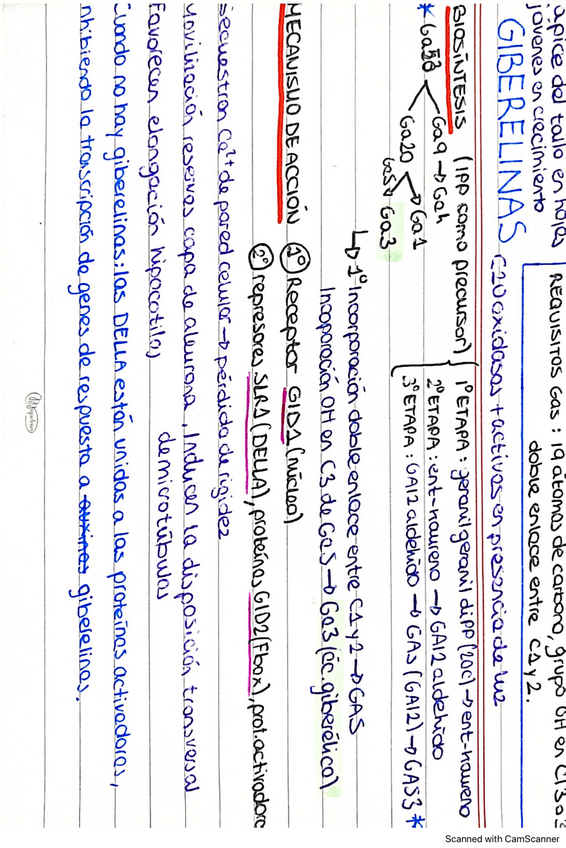 ápice del tallo en hojas
jóvenes en crecimiento
REQUISITOS Gas: 19 átomos de carbono, grupo OH en C13 o 3
doble enlace entre C1 y 2.
GIBERELINAS C20 oxidasas + activas en presencia de luz
BIOSÍNTESIS (IPP como precursor)
1º ETAPA: geranil geranil diPP (20C) → ent-Kaureno
2º ETAPA: ent-Kaureno → GA12 aldehido
3º ETAPA: GA12 aldehido → GAs (GA12) → GA53 *
* Ga53
Ga9 → Ga4
Ga20
Ga1
Ga5 Ga3
↳ 1º Incorporación doble enlace entre C1 y 2 → GA5
Incoporación OH en C3 de Ga5 → Ga3 (ác. giberélico)
MECANISMO DE ACCIÓN 1º Receptor GID1 (núcleo)
2º represores SLR1 (DELLA), proteínas GID2 (Fbox), prot. activadora
secuestran Ca2+ de pared celular → pérdida de rigidez
Movilización reservas capa de aleurona, Inducen la disposición transversal
de microtúbulos
Favorecen elongación hipocotilos
Cuando no hay giberelinas: las DELLA están unidas a las proteínas activadoras,
inhibiendo la transcripción de genes de respuesta a auxinas giberelinas.
Scanned with CamScanner